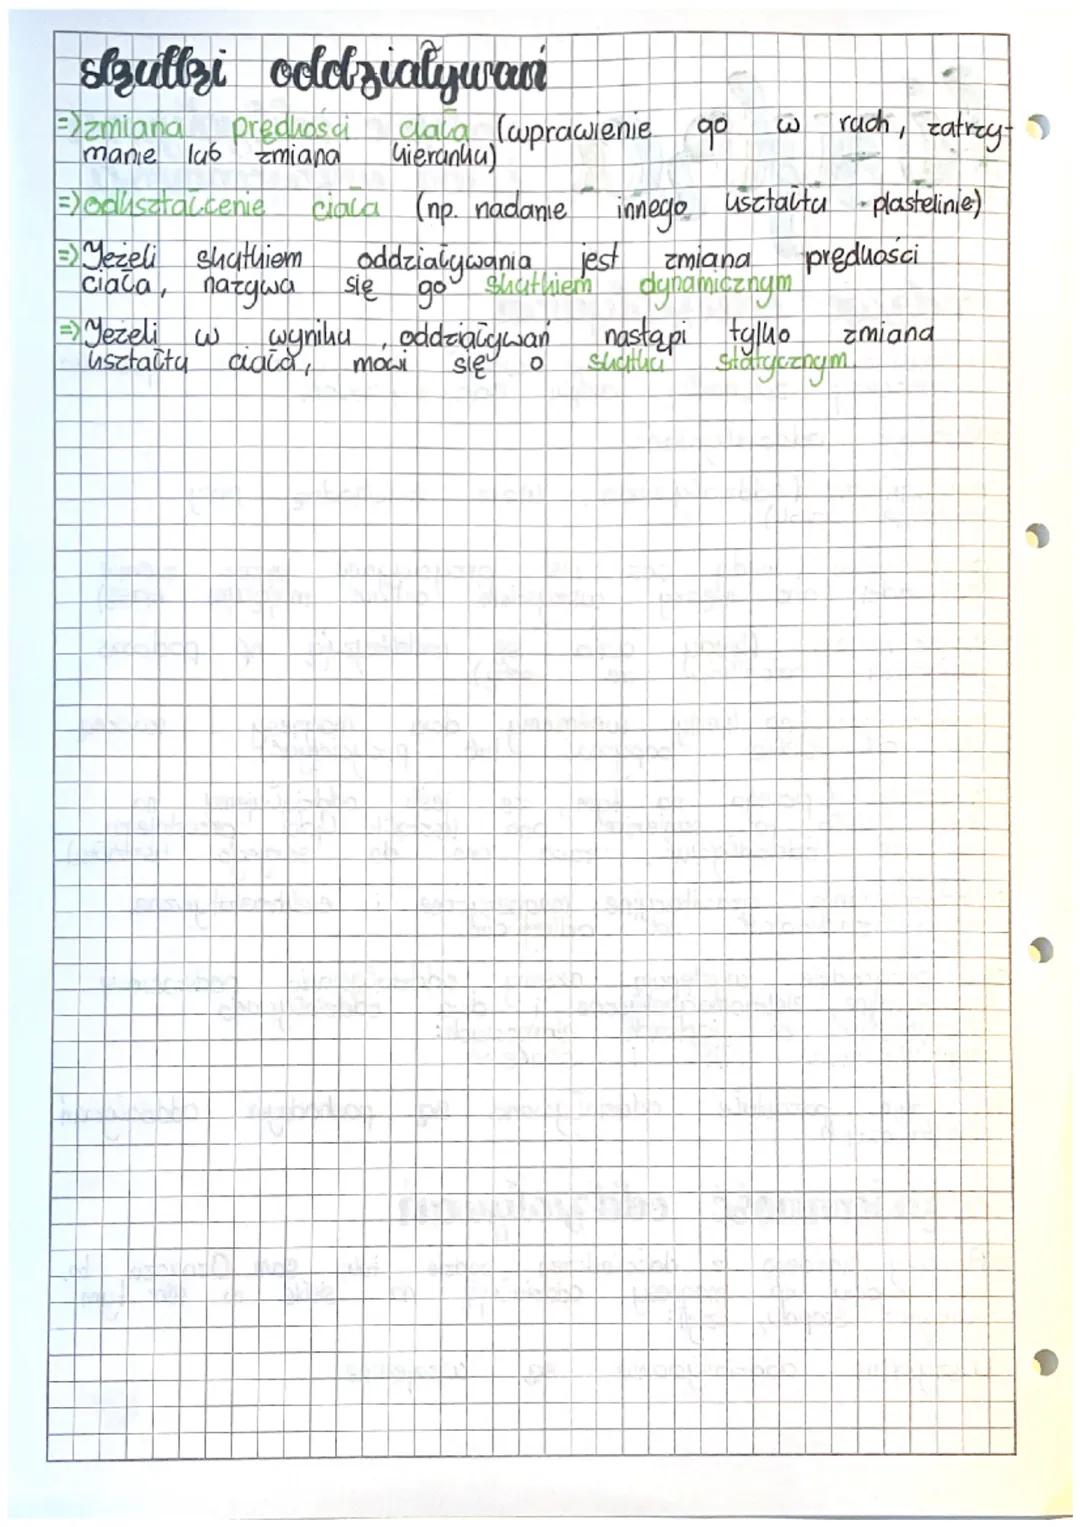 skutki oddziaływań
=>zmiana prędkości ciała (wprawienie go w ruch, zatrzy-
manie lub zmiana kierunku)
=>odkształcenie ciała (np. nadanie innego kształtu plastelinie)
=>Jeżeli skutkiem oddziaływania jest zmiana prędkości
ciała, nazywa się go skutkiem dynamicznym
=>Jeżeli w wyniku oddziaływań nastąpi tylko zmiana
kształtu ciała, mówi się o skutku statycznym.